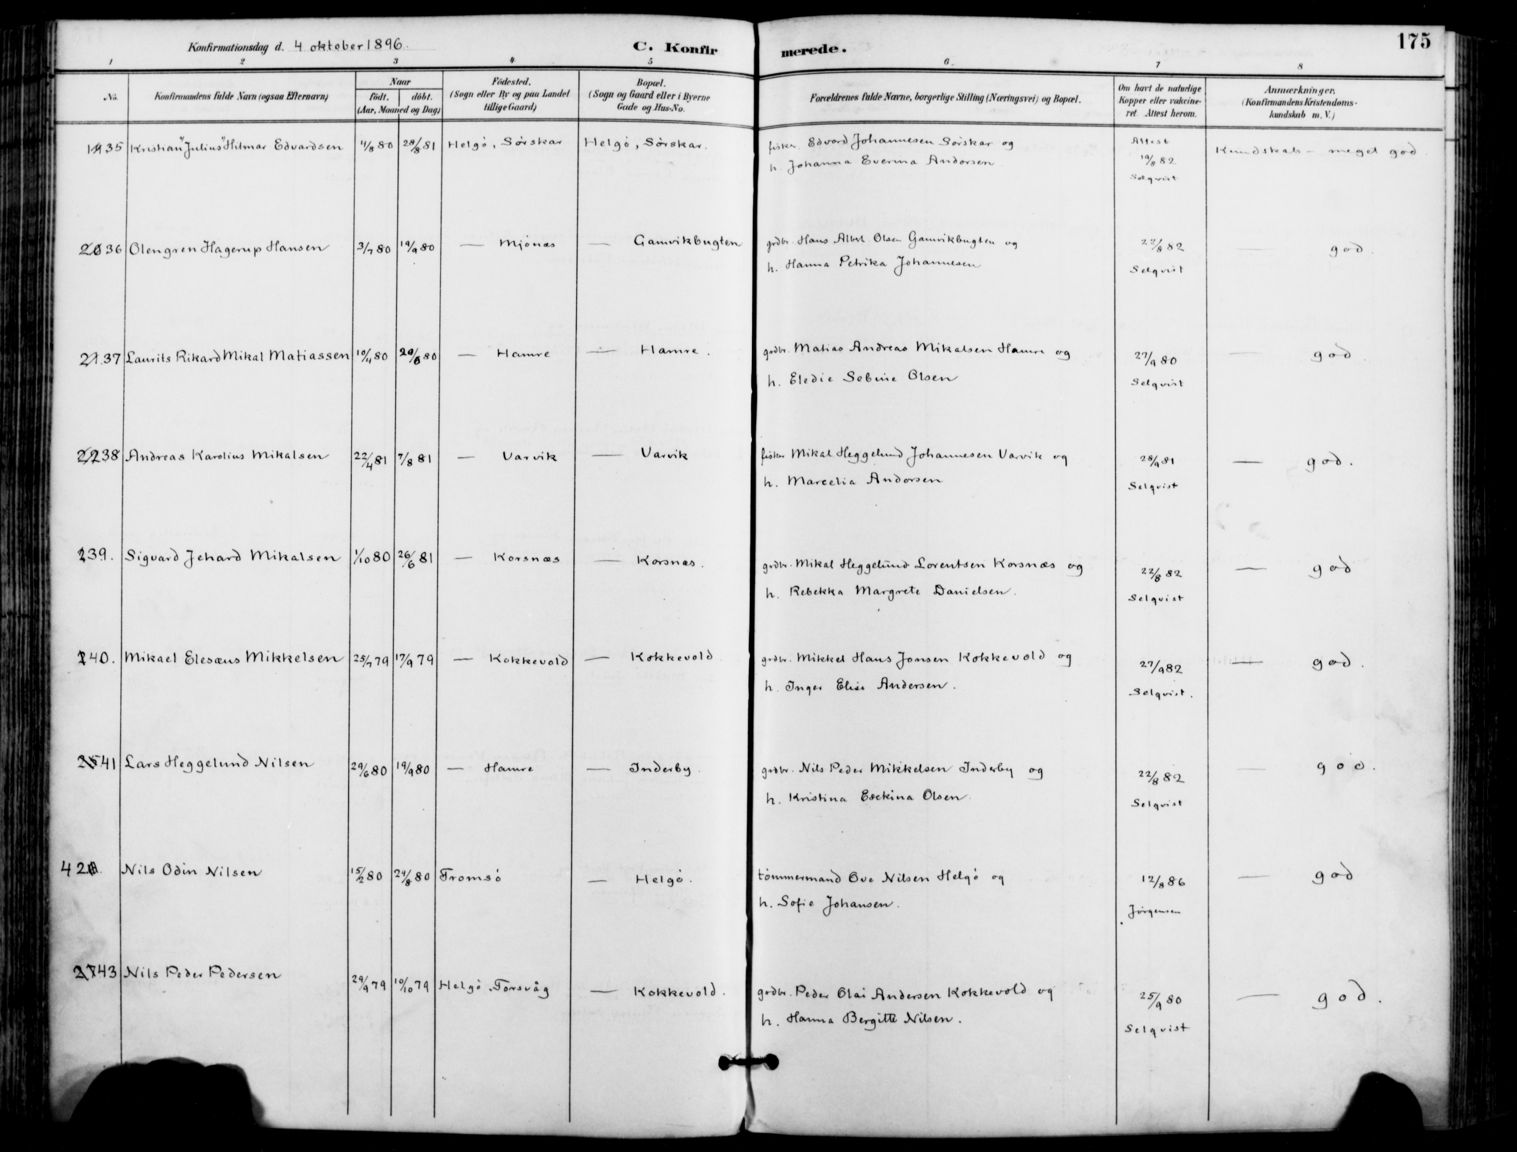 Konfirmationsdag d. 4 oktober 1896.
C. Konfirmerede.
175
1 2 3 4 5 6 7 8
No. Konfirmandens fulde Navn (ogsaa Efternavn) Naar født. døbt. (Aar, Maaned og Dag) Fødested. (Sogn eller By og paa Landet tillige Gaard) Bopæl. (Sogn og Gaard eller i Byerne Gade og Hus-No. Forældrenes fulde Navne, borgerlige Stilling (Næringsvei) og Bopæl. Om havt de naturlige Kopper eller vakcineret. Attest herom. Anmerkninger. (Konfirmandens Kristendomskundskab m. V.)
35 Kristian Julius Hilmar Edvardsen 11/8 80 28/8 81 Helgö, Sörskar Helgö, Sörskar. fisker. Edvard Johannesen Sörskar og Attest Kundskab – meget god.
h. Johanna Everina Andorsen 19/8 82
Selqvist
36 Olengren Hagerup Hansen 3/7 80 19/9 80 — Mjönæs — Gamvikbugten grdbr. Hans Albrt Olsen Gamvikbugten og 22/8 82 — god.
h. Hanna Petrika Johannesen Selqvist
37 Laurits Rikard Mikal Matiassen 10/4 80 20/6 80 — Hamre — Hamre. grdbr. Matias Andreas Mikalsen Hamre og 27/9 80 — god.
h. Eledie Sebine Olsen Selqvist
38 Andreas Karolius Mikalsen 22/4 81 7/8 81 — Varvik — Varvik fisker Mikal Heggelund Johannesen Varvik og 28/9 81 — god.
h. Marcelia Andorsen Selqvist
39. Sigvard Jehard Mikalsen 1/10 80 26/6 81 — Korsnæs — Korsnæs. grdbr. Mikal Heggelund Lorentsen Korsnæs og 22/8 82 — god
h. Rebekka Margrete Danielsen. Selqvist
40. Mikael Elesæus Mikkelsen 25/7 79 17/9 79 — Kokkevold — Kokkevold grdbr. Mikkel Hans Jonsen Kokkevold og 27/9 82 — god.
h. Inger Elise Andersen. Selqvist.
41 Lars Heggelund Nilsen 29/6 80 19/9 80 — Hamre — Inderby. grdbr. Nils Peder Mikkelsen Inderby og 22/8 82 — god.
h. Kristina Esekina Olsen. Selqvist
42 Nils Odin Nilsen 15/2 80 24/8 80 Tromsö — Helgö. tömmermand Ove Nilsen Helgö og 12/8 86 — god
h. Sofie Johansen. Jörgensen
43 Nils Peder Pedersen 29/9 79 10/10 79 Helgö, Torsvåg — Kokkevold. grdbr. Peder Olai Andersen Kokkevold og 25/9 80 — god.
h. Hanna Bergitte Nilsen. Selqvist